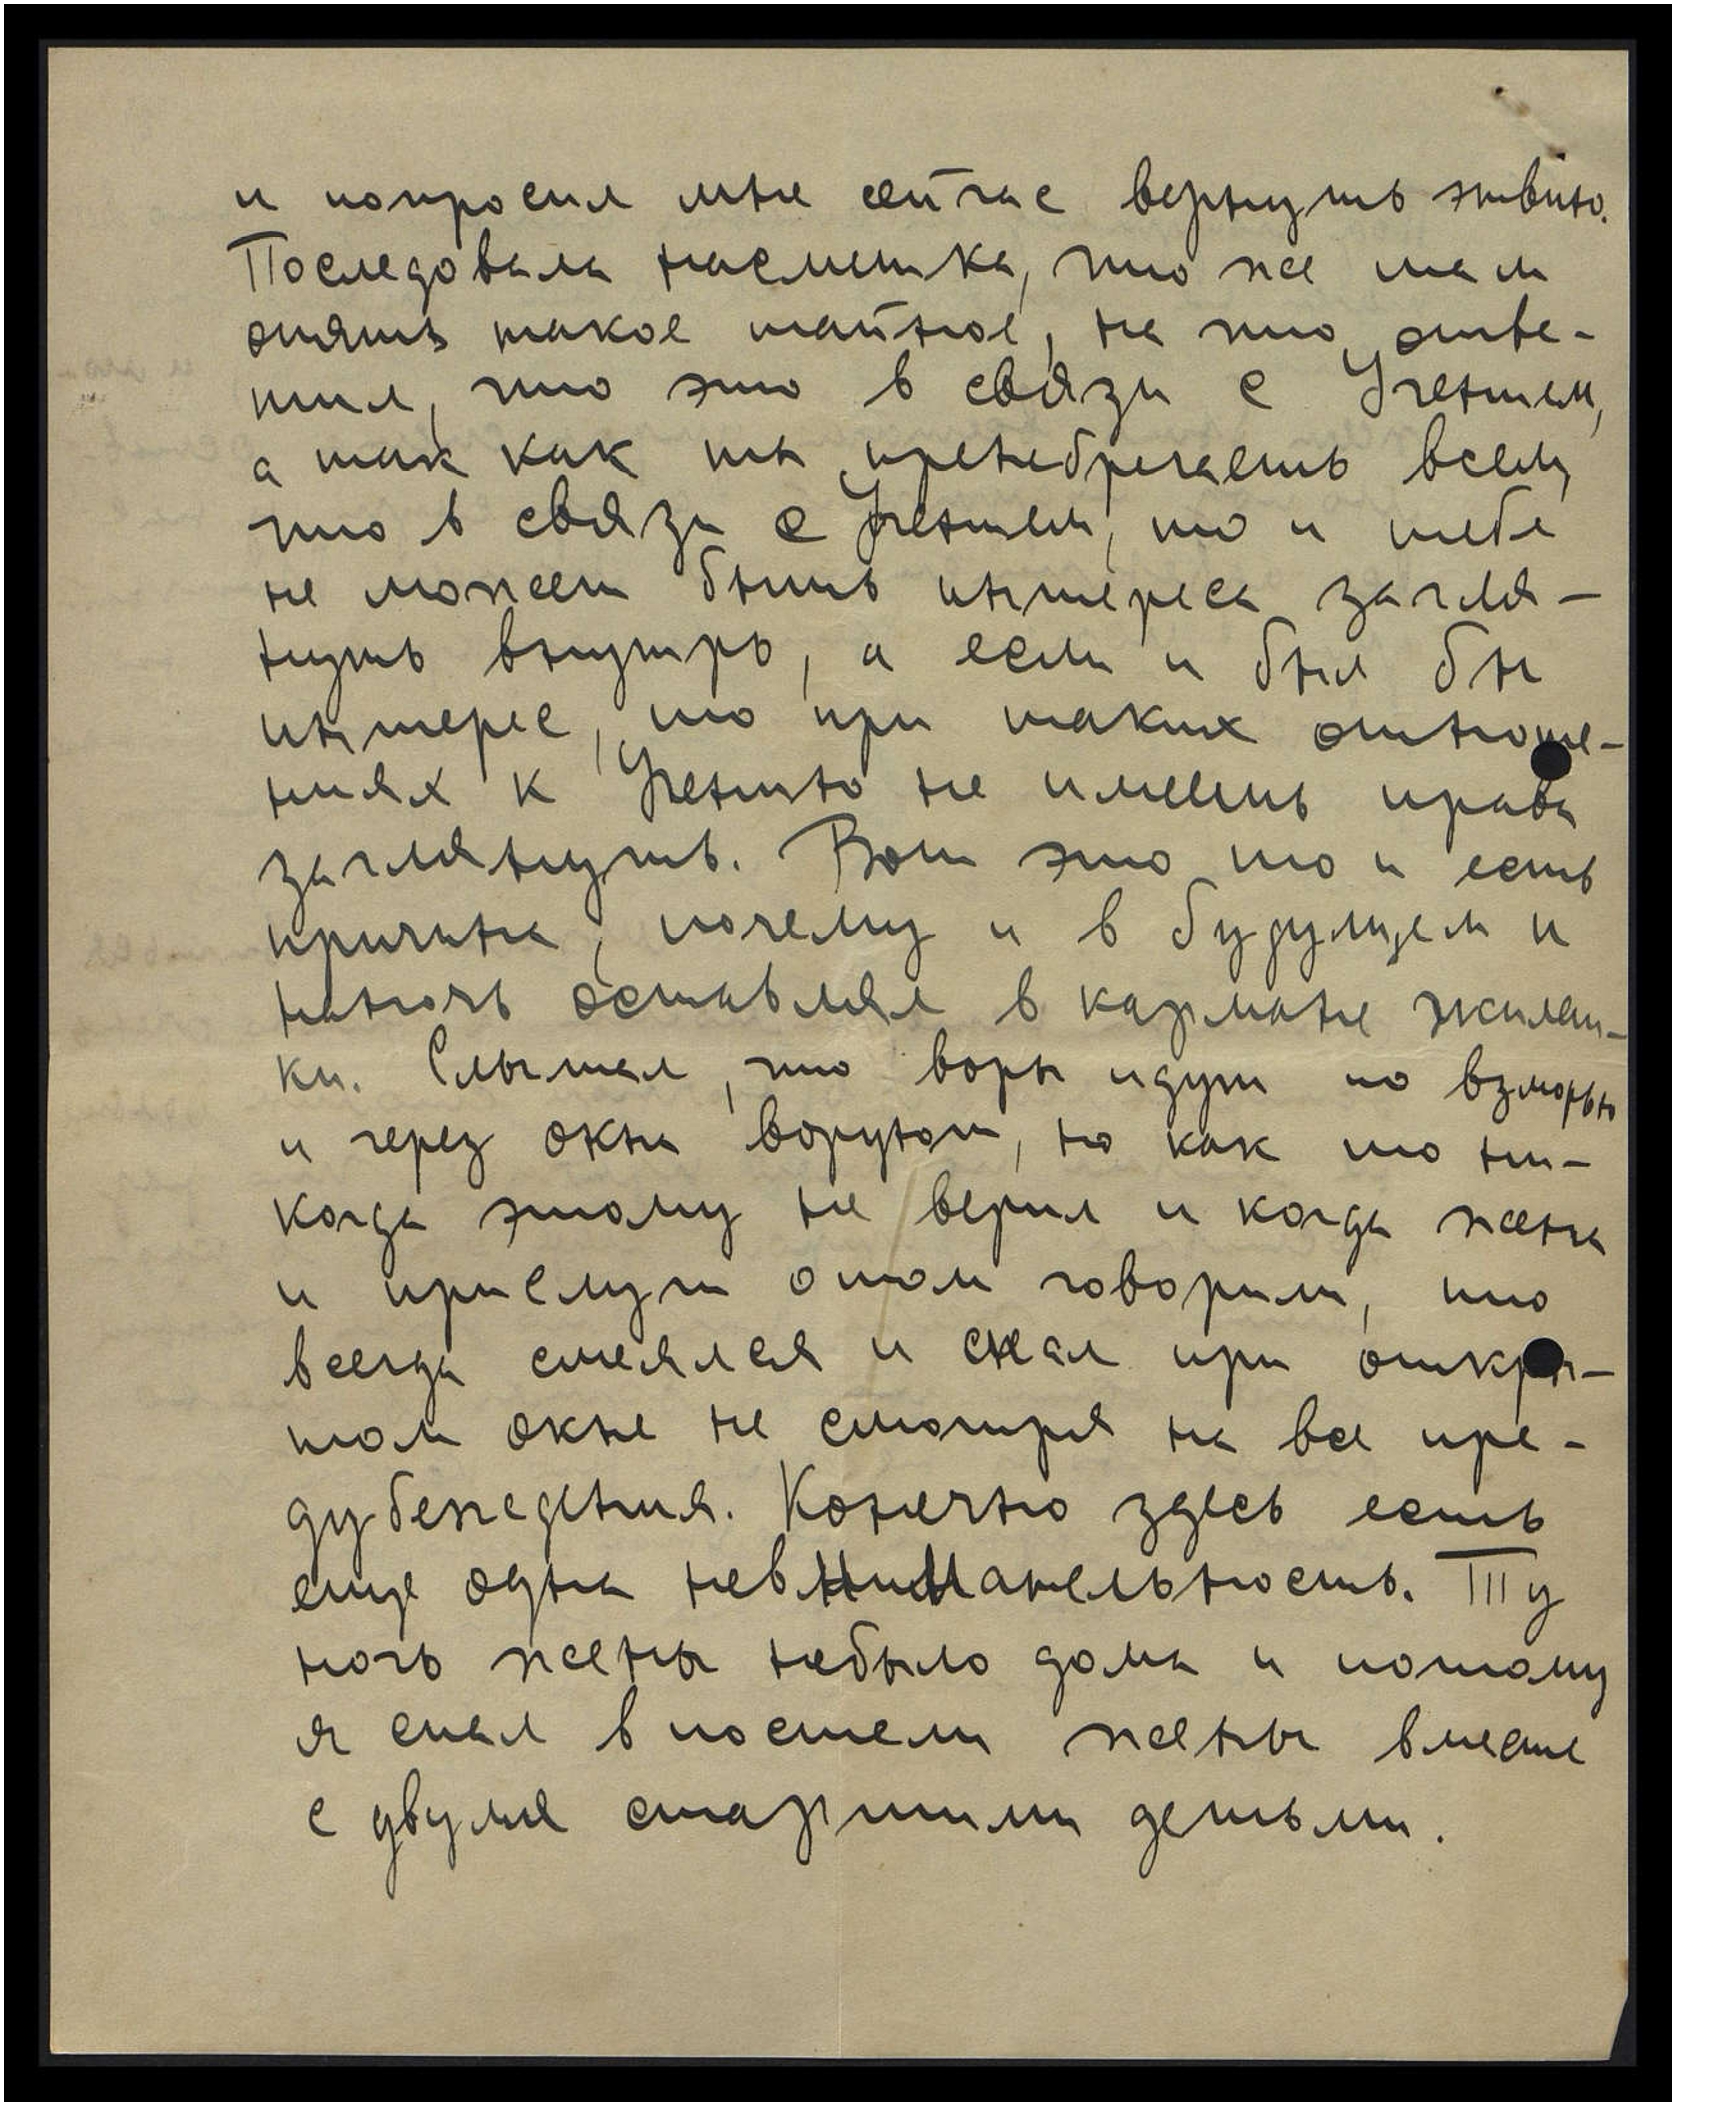 и попросил мне сейчас вернуть
Последовала насмешка, что же там
опять такое тайное, на что отве-
тил, что это в связи с Учением,
а так как ты пренебрегаешь всем,
что в связи с Учением, то и тебе
не может быть интереса загля-
нуть внутрь, а если и был бы
интерес, то при таких отноше-
ниях к Учению не имеешь права
заглянуть. Вот это то и есть
причина, почему и в будущем и
наночь оставлял в кармане жилет-
ки. Слышал, что воры идут по взморью
и через окна воруют, но как то ни-
когда этому не верил и когда жена
и прислуги отом говорили, то
всегда смеялся и спал при откры-
том окне не смотря на все пре-
дубеждения. Конечно здесь есть
еще одна невнимательность. Ту
ночь жены небыло дома и потому
я спал в постели жены вместе
с двумя старшими детьми.